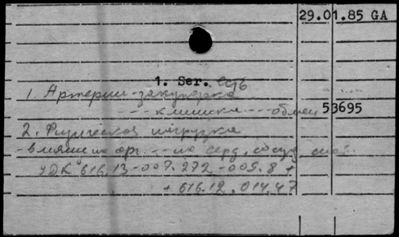 29.01.85 GA
1. Ser.
1. Артерии-закупорка
--- клиника --- обмен 53695
2. Физическая нагрузка
-влияние на орг. --- на серд, сосуд сист.
УДК 616.13-007.272-005.8 +
+ 616.12.014.47